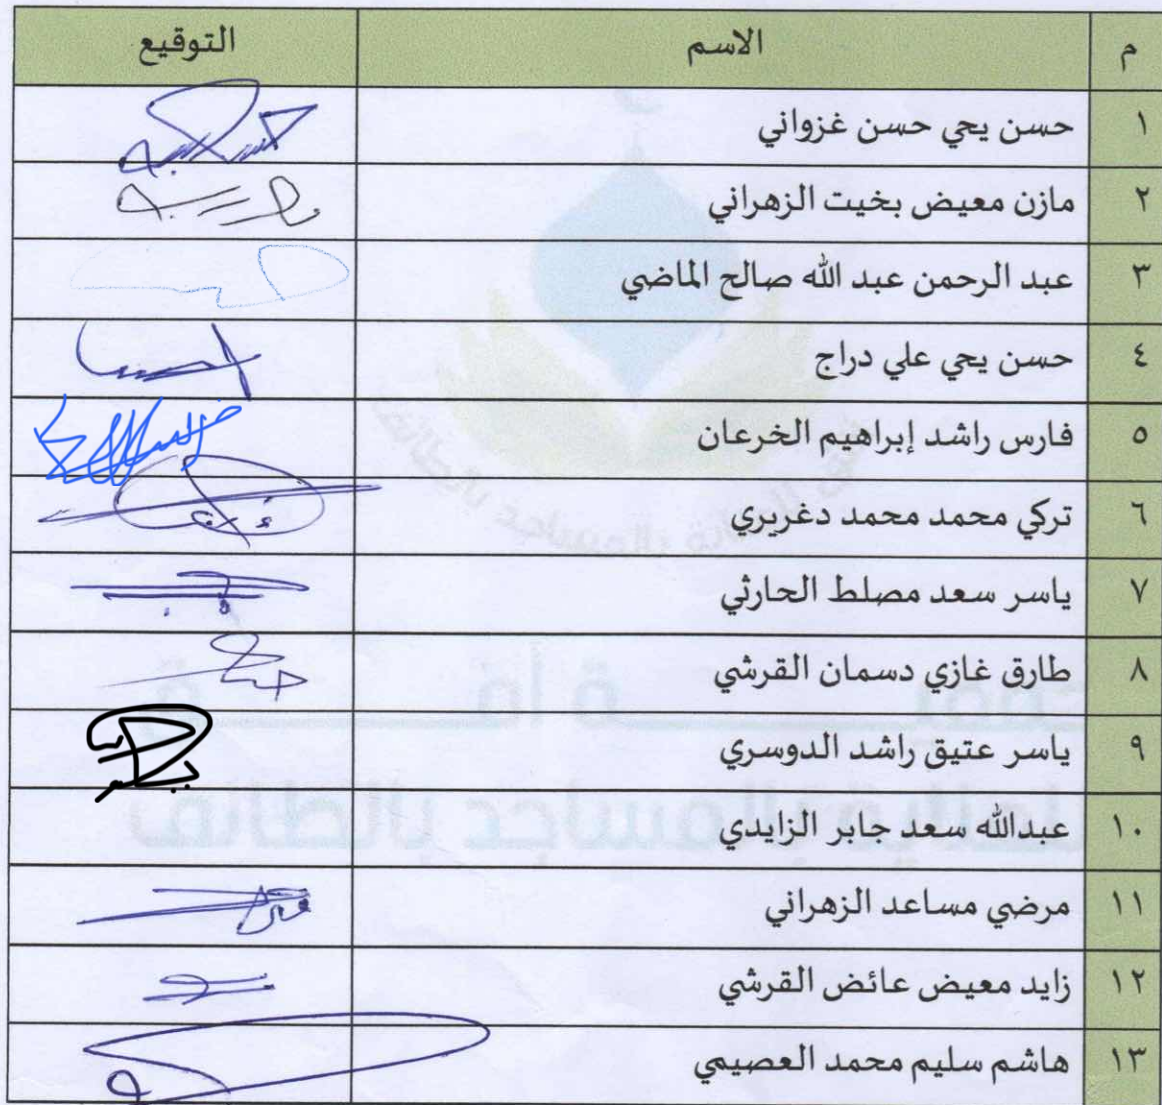 م الاسم التوقيع
١ حسن يحي حسن غزواني
٢ مازن معيض بخيت الزهراني
٣ عبد الرحمن عبد الله صالح الماضي
٤ حسن يحي علي دراج
٥ فارس راشد إبراهيم الخرعان
٦ تركي محمد محمد دغريري
٧ ياسر سعد مصلط الحارثي
٨ طارق غازي دسمان القرشي
٩ ياسر عتيق راشد الدوسري
١٠ عبدالله سعد جابر الزايدي
١١ مرضي مساعد الزهراني
١٢ زايد معيض عائض القرشي
١٣ هاشم سليم محمد العصيمي